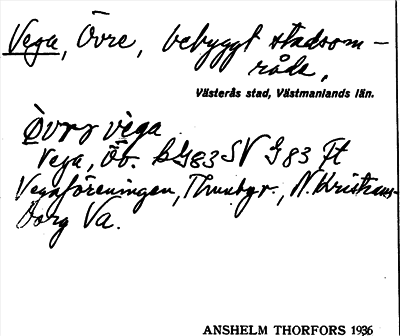 Vega, Övre, bebyggt stadsom-
råde,
Västerås stad, Västmanlands län.
vèga
Vega, Öv. bG83SV G83 Ft
Vegaföreningen, Thunbyv., N. Kristians-
borg Va.
ANSHELM THORFORS 1936